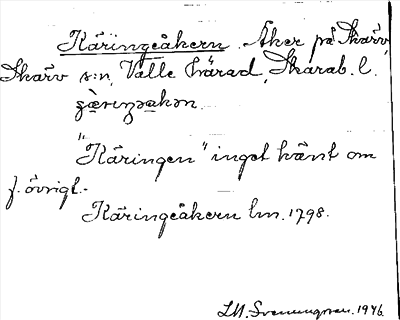 Käringeåkern. Åker på Skärv,
Skärv s:n, Valle härad, Skarab. l.
"Käringen" inget känt om
f. övrigt.
Käringeåkern lm. 1798.
1946.